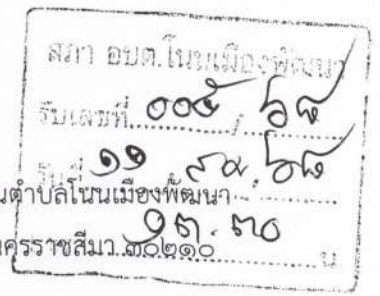 สภา อบต.โนนเมืองพัฒนา
รับเลขที่ ๐๐๕ / ๖๘
วันที่ ๑๑
นตำบลโนนเมืองพัฒนา
๑๓.๓๐ น
นครราชสีมา ๓๐๒๑๐